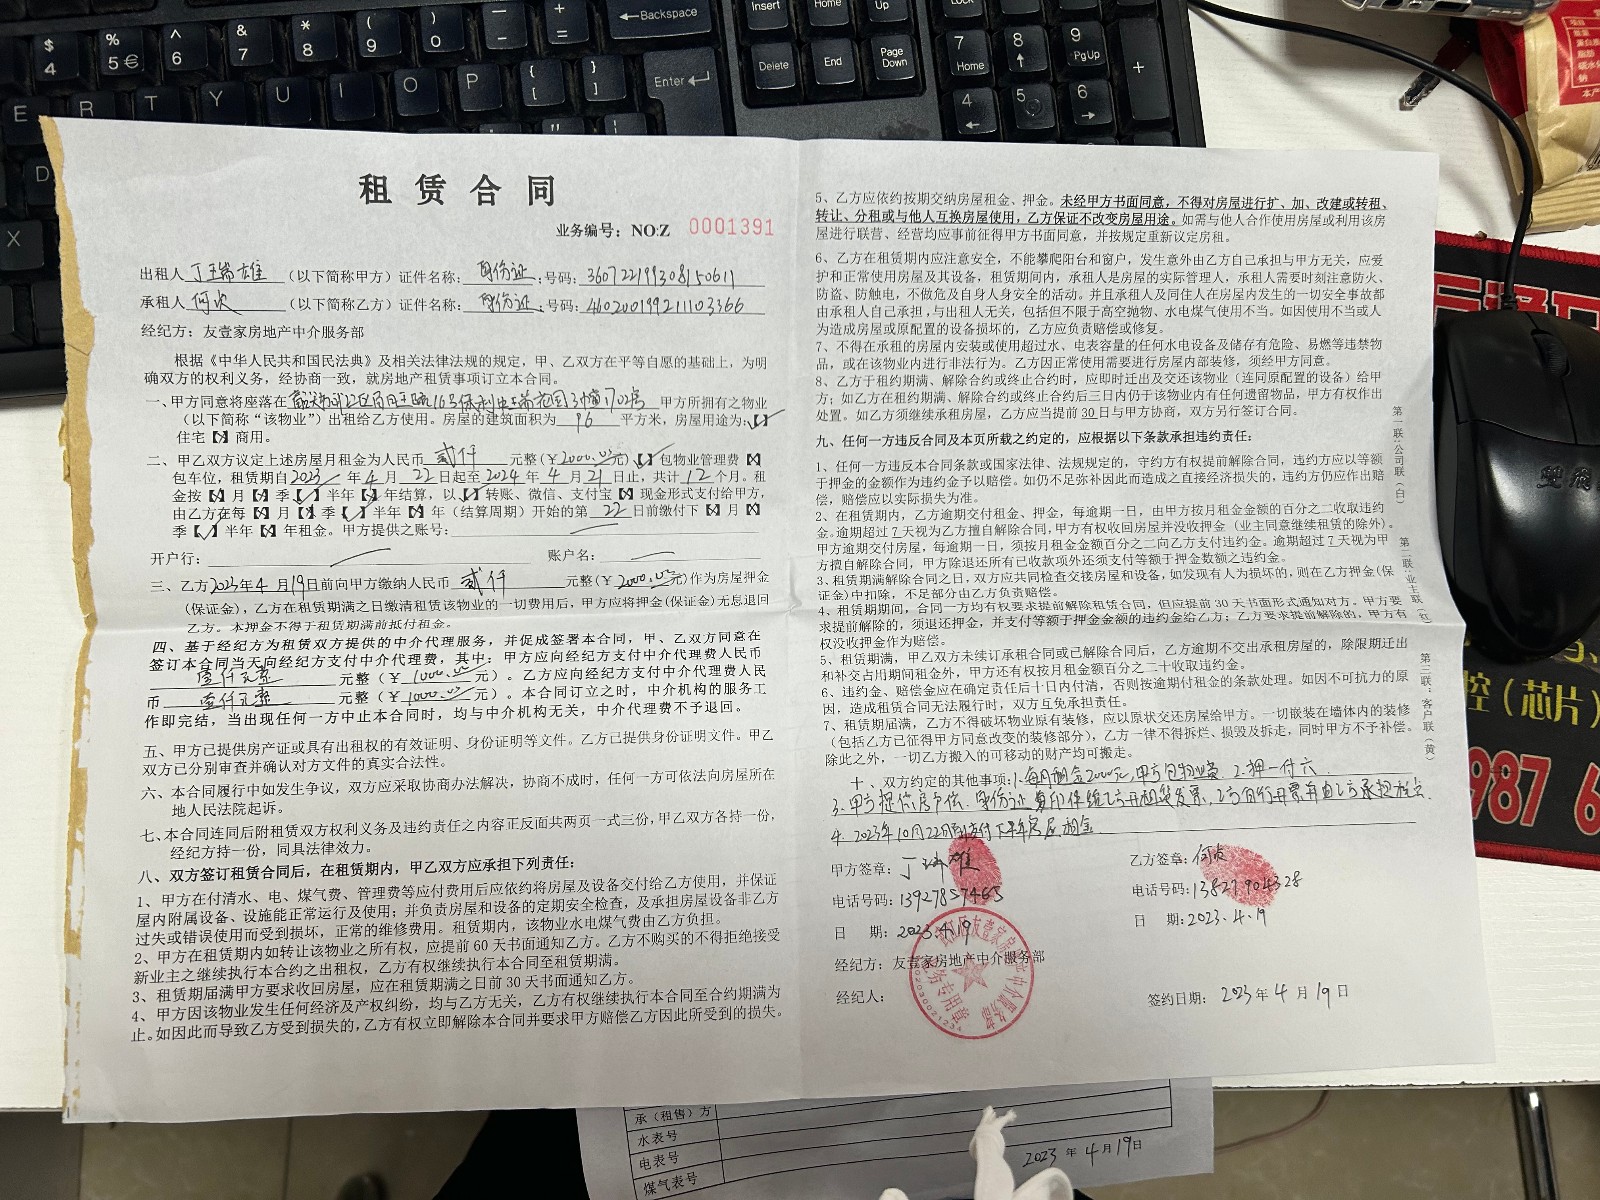 租赁合同
业务编号：NO:Z 0001391
出租人 丁瑞雄 （以下简称甲方）证件名称：身份证；号码：360722199308150611
承租人 何 （以下简称乙方）证件名称：身份证；号码：460200199211103366
经纪方：友壹家房地产中介服务部
根据《中华人民共和国民法典》及相关法律法规的规定，甲、乙双方在平等自愿的基础上，为明
确双方的权利义务，经协商一致，就房地产租赁事项订立本合同。
一、甲方同意将座落在 16号保利中央花园3幢1702房 甲方所拥有之物业
（以下简称“该物业”）出租给乙方使用。房屋的建筑面积为 96 平方米，房屋用途为：【】
住宅【】商用。
二、甲乙双方议定上述房屋月租金为人民币 贰仟 元整（￥2000.00元）【】包物业管理费【】
包车位，租赁期自2023年4月22日起至2024年4月21日止，共计12个月。租
金按【】月【】季【】半年【】年结算，以【】转账、微信、支付宝【】现金形式支付给甲方，
由乙方在每【】月【】季【】半年【】年（结算周期）开始的第 22 日前缴付下【】月【】
季【】半年【】年租金。甲方提供之账号：
开户行： 账户名：
三、乙方2023年4月19日前向甲方缴纳人民币 贰仟 元整（￥2000.00元）作为房屋押金
（保证金），乙方在租赁期满之日缴清租赁该物业的一切费用后，甲方应将押金(保证金)无息退回
乙方。本押金不得于租赁期满前抵付租金。
四、基于经纪方为租赁双方提供的中介代理服务，并促成签署本合同，甲、乙双方同意在
签订本合同当天向经纪方支付中介代理费，其中：甲方应向经纪方支付中介代理费人民币
壹仟元 元整（￥1000.00元）。乙方应向经纪方支付中介代理费人民
币 壹仟元 元整（￥1000.00元）。本合同订立之时，中介机构的服务工
作即完结，当出现任何一方中止本合同时，均与中介机构无关，中介代理费不予退回。
五、甲方已提供房产证或具有出租权的有效证明、身份证明等文件。乙方已提供身份证明文件。甲乙
双方已分别审查并确认对方文件的真实合法性。
六、本合同履行中如发生争议，双方应采取协商办法解决，协商不成时，任何一方可依法向房屋所在
地人民法院起诉。
七、本合同连同后附租赁双方权利义务及违约责任之内容正反面共两页一式三份，甲乙双方各持一份，
经纪方持一份，同具法律效力。
八、双方签订租赁合同后，在租赁期内，甲乙双方应承担下列责任：
1、甲方在付清水、电、煤气费、管理费等应付费用后应依约将房屋及设备交付给乙方使用，并保证
屋内附属设备、设施能正常运行及使用；并负责房屋和设备的定期安全检查，及承担房屋设备非乙方
过失或错误使用而受到损坏，正常的维修费用。租赁期内，该物业水电煤气费由乙方负担。
2、甲方在租赁期内如转让该物业之所有权，应提前60天书面通知乙方。乙方不购买的不得拒绝接受
新业主之继续执行本合约之出租权，乙方有权继续执行本合同至租赁期满。
3、租赁期届满甲方要求收回房屋，应在租赁期满之日前30天书面通知乙方。
4、甲方因该物业发生任何经济及产权纠纷，均与乙方无关，乙方有权继续执行本合同至合约期满为
止。如因此而导致乙方受到损失的，乙方有权立即解除本合同并要求甲方赔偿乙方因此所受到的损失。
5、乙方应依约按期交纳房屋租金、押金。未经甲方书面同意，不得对房屋进行扩、加、改建或转租、
转让、分租或与他人互换房屋使用，乙方保证不改变房屋用途。如需与他人合作使用房屋或利用该房
屋进行联营、经营均应事前征得甲方书面同意，并按规定重新议定房租。
6、乙方在租赁期内应注意安全，不能攀爬阳台和窗户，发生意外由乙方自己承担与甲方无关，应爱
护和正常使用房屋及其设备，租赁期间内，承租人是房屋的实际管理人，承租人需要时刻注意防火、
防盗、防触电，不做危及自身人身安全的活动。并且承租人及同住人在房屋内发生的一切安全事故都
由承租人自己承担，与出租人无关，包括但不限于高空抛物、水电煤气使用不当。如因使用不当或人
为造成房屋或原配置的设备损坏的，乙方应负责赔偿或修复。
7、不得在承租的房屋内安装或使用超过水、电表容量的任何水电设备及储存有危险、易燃等违禁物
品，或在该物业内进行非法行为。乙方因正常使用需要进行房屋内部装修，须经甲方同意。
8、乙方于租约期满、解除合约或终止合约时，应即时迁出及交还该物业（连同原配置的设备）给甲
方；如乙方在租约期满、解除合约或终止合约后三日内仍于该物业内有任何遗留物品，甲方有权作出
处置。如乙方须继续承租房屋，乙方应当提前30日与甲方协商，双方另行签订合同。
九、任何一方违反合同及本页所载之约定的，应根据以下条款承担违约责任：
1、任何一方违反本合同条款或国家法律、法规规定的，守约方有权提前解除合同，违约方应以等额
于押金的金额作为违约金予以赔偿。如仍不足弥补因此而造成之直接经济损失的，违约方仍应作出赔
偿，赔偿应以实际损失为准。
2、在租赁期内，乙方逾期交付租金、押金，每逾期一日，由甲方按月租金金额的百分之二收取违约
金。逾期超过7天视为乙方擅自解除合同，甲方有权收回房屋并没收押金（业主同意继续租赁的除外）。
甲方逾期交付房屋，每逾期一日，须按月租金金额百分之二向乙方支付违约金。逾期超过7天视为甲
方擅自解除合同，甲方除退还所有已收款项外还须支付等额于押金数额之违约金。
3、租赁期满解除合同之日，双方应共同检查交接房屋和设备，如发现有人为损坏的，则在乙方押金(保
证金)中扣除，不足部分由乙方负责赔偿。
4、租赁期期间，合同一方均有权要求提前解除租赁合同，但应提前30天书面形式通知对方。甲方要
求提前解除的，须退还押金，并支付等额于押金金额的违约金给乙方；乙方要求提前解除的，甲方有
权没收押金作为赔偿。
5、租赁期满，甲乙双方未续订承租合同或已解除合同后，乙方逾期不交出承租房屋的，除限期迁出
和补交占用期间租金外，甲方还有权按月租金额百分之二十收取违约金。
6、违约金、赔偿金应在确定责任后十日内付清，否则按逾期付租金的条款处理。如因不可抗力的原
因，造成租赁合同无法履行时，双方互免承担责任。
7、租赁期届满，乙方不得破坏物业原有装修，应以原状交还房屋给甲方。一切嵌装在墙体内的装修
（包括乙方已征得甲方同意改变的装修部分），乙方一律不得拆烂、损毁及拆走，同时甲方不予补偿。
除此之外，一切乙方搬入的可移动的财产均可搬走。
十、双方约定的其他事项：1.每月租金2000元，甲方包物业费. 2.押一付六
3.甲方提供房产证、身份证复印件给乙方开租赁发票，乙方自行开票
4. 2023年10月22日 支付下半年房屋租金
甲方签章：丁瑞雄
电话号码：13927857465
日 期：2023.4.19
经纪方：友壹家房地产中介服务部
经纪人：
乙方签章：何
电话号码：13827904328
日 期：2023.4.19
签约日期：2023年4月19日
第一联：公司联（白）
第二联：业主联（红）
第三联：客户联（黄）
承（租售）方
水表号
电表号
煤气表号
2023年4月19日
控（芯片）
987 6
Backspace
Enter
Insert
Home
Up
Delete
End
Page Down
7 Home
8
9 PgUp
4
5
6